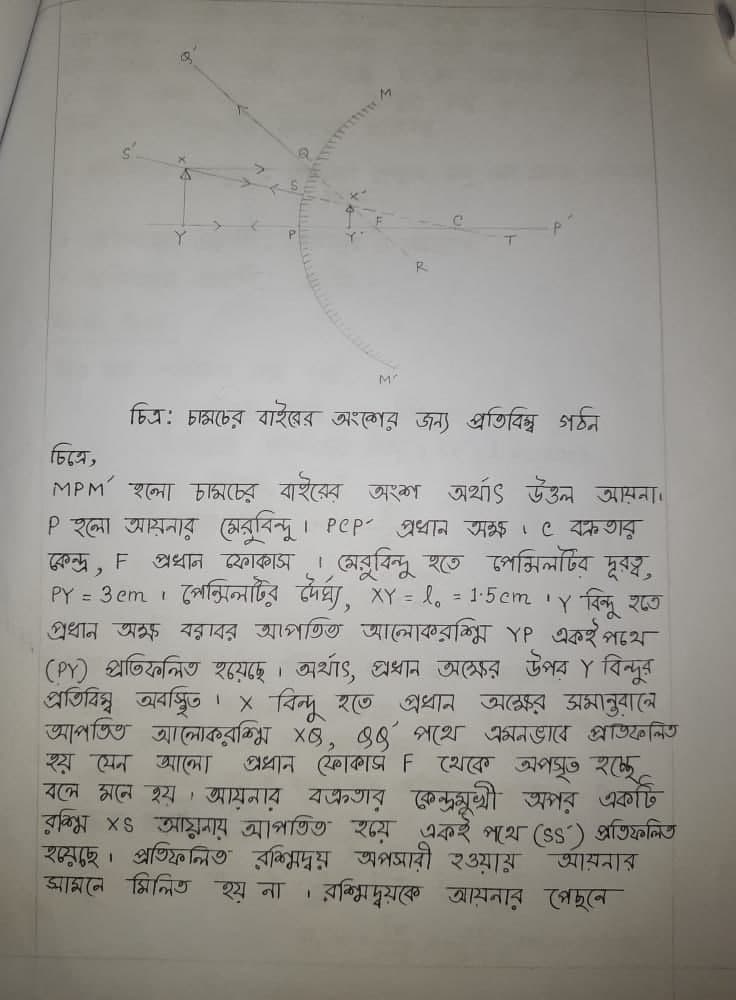 Q′
M
S′
X
Q
S
X′
Y
P
Y′
F
C
T
P′
R
M′
চিত্র: চামচের বাইরের অংশের জন্য প্রতিবিম্ব গঠন
চিত্রে,
MPM′ হলো চামচের বাইরের অংশ অর্থাৎ উত্তল আয়না।
P হলো আয়নার মেরুবিন্দু। PCP′ প্রধান অক্ষ। C বক্রতার
কেন্দ্র, F প্রধান ফোকাস । মেরুবিন্দু হতে পেন্সিলটির দূরত্ব,
PY = 3 cm । পেন্সিলটির দৈর্ঘ্য, XY = l₀ = 1.5 cm । Y বিন্দু হতে
প্রধান অক্ষ বরাবর আপতিত আলোকরশ্মি YP একই পথে
(PY) প্রতিফলিত হয়েছে । অর্থাৎ, প্রধান অক্ষের উপর Y বিন্দুর
প্রতিবিম্ব অবস্থিত । X বিন্দু হতে প্রধান অক্ষের সমান্তরালে
আপতিত আলোকরশ্মি XQ, QQ′ পথে এমনভাবে প্রতিফলিত
হয় যেন আলো প্রধান ফোকাস F থেকে অপসৃত হচ্ছে
বলে মনে হয় । আয়নার বক্রতার কেন্দ্রমুখী অপর একটি
রশ্মি XS আয়নায় আপতিত হয়ে একই পথে (SS′) প্রতিফলিত
হয়েছে । প্রতিফলিত রশ্মিদ্বয় অপসারী হওয়ায় আয়নার
সামনে মিলিত হয় না । রশ্মিদ্বয়কে আয়নার পেছনে